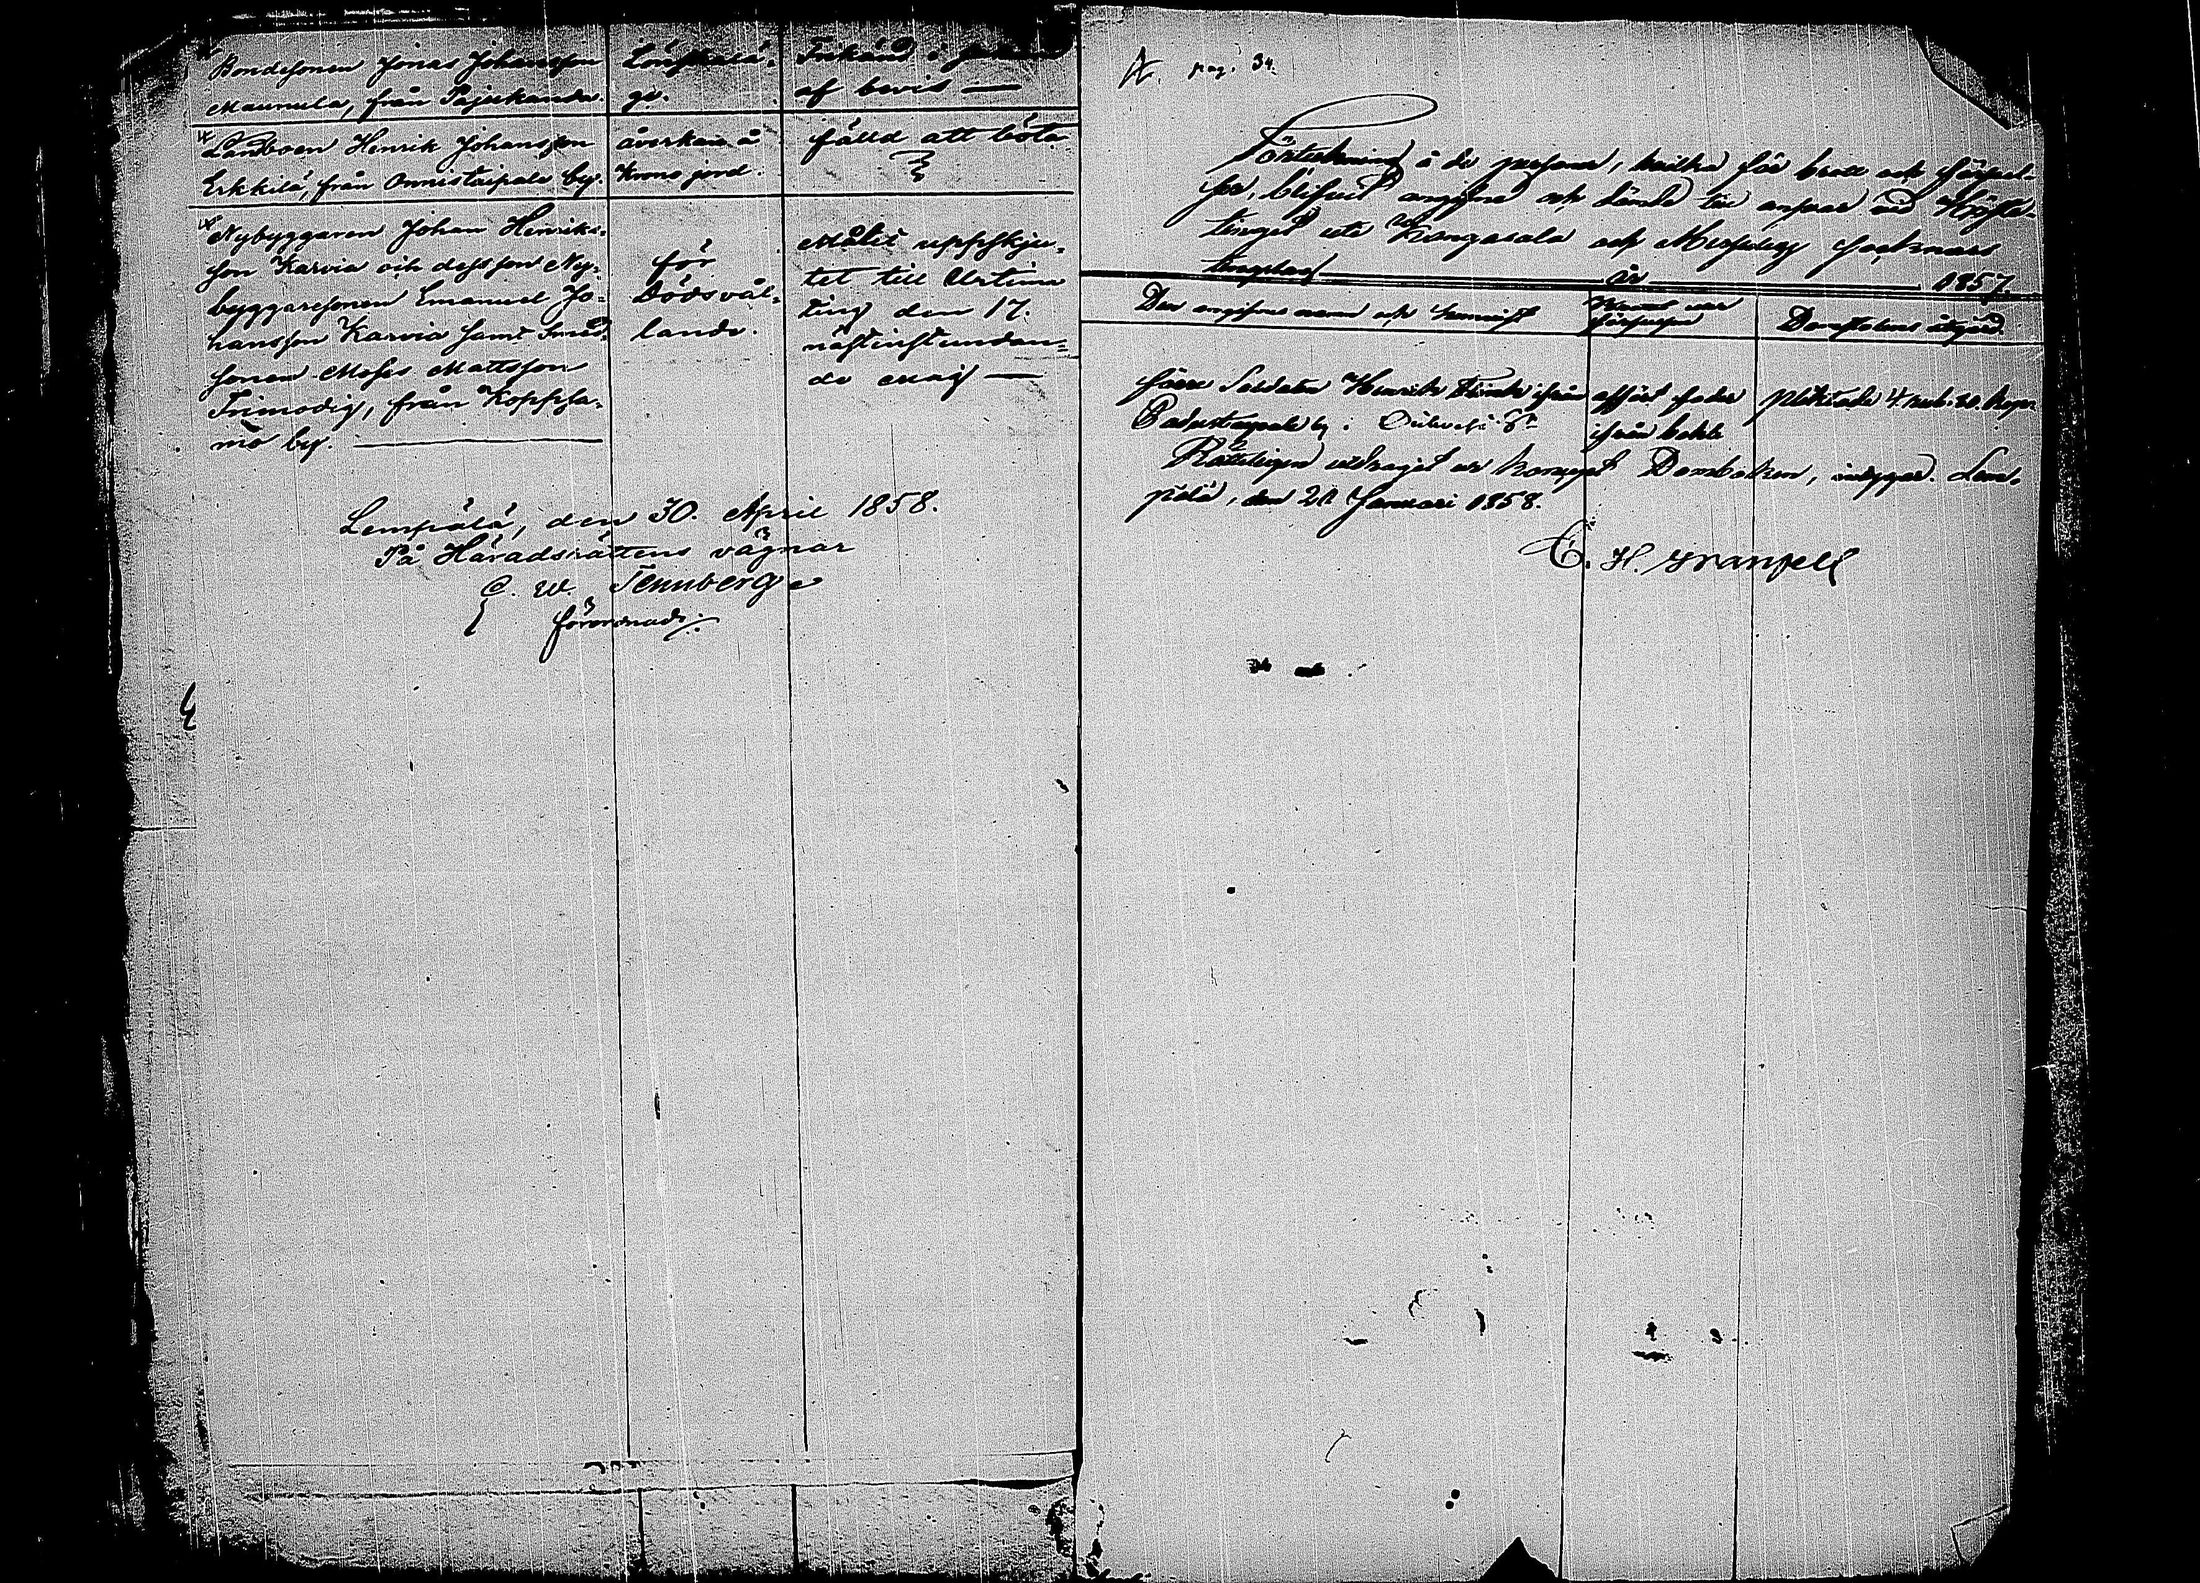 Bondesonen Jonas Johansson
Maunula, från Pajukanda.
Lönskalä-
ge.
Frikänd i
af bevis —
Landboen Henrik Johansson
Erkkilä, från Onnistaipale by.
åverkan å
Krono jord.
fälld att böta
Nybyggaren Johan Henriks-
son Karvia och dess son Ny-
byggaresonen Emanuel Jo-
hansson Karvia samt
sonen Moses Mattsson
Trimodig, från Koppsa-
mo by.
för
vål-
lande.
Målet uppskju-
tet till Urtima
ting den 17.
nästinstundan-
de Maij —
Lempälä, den 30. April 1858.
På Häradsrättens vägnar
C. W. Tennberg
förordnad.
pag. 34.
Förteckning å de personer, hvilka för brott och förseel-
ser, blifvit angifne och lände till ansvar vid Höste-
tinget uti Kangasala och Messuby socknars
tingslag år 1857
Den angifnes namn och hemvist
Brott eller
förseelse
Domstolens åtgärd.
förre Soldaten Henrik Flink ifrån
by.
afföst foder
ifrån bohle
pliktade 4. rub. 20. kop.
Rätteligen utdraget ur Domboken, intygar. Lem-
pälä, den 21 Januari 1858.
C. H. Granfelt